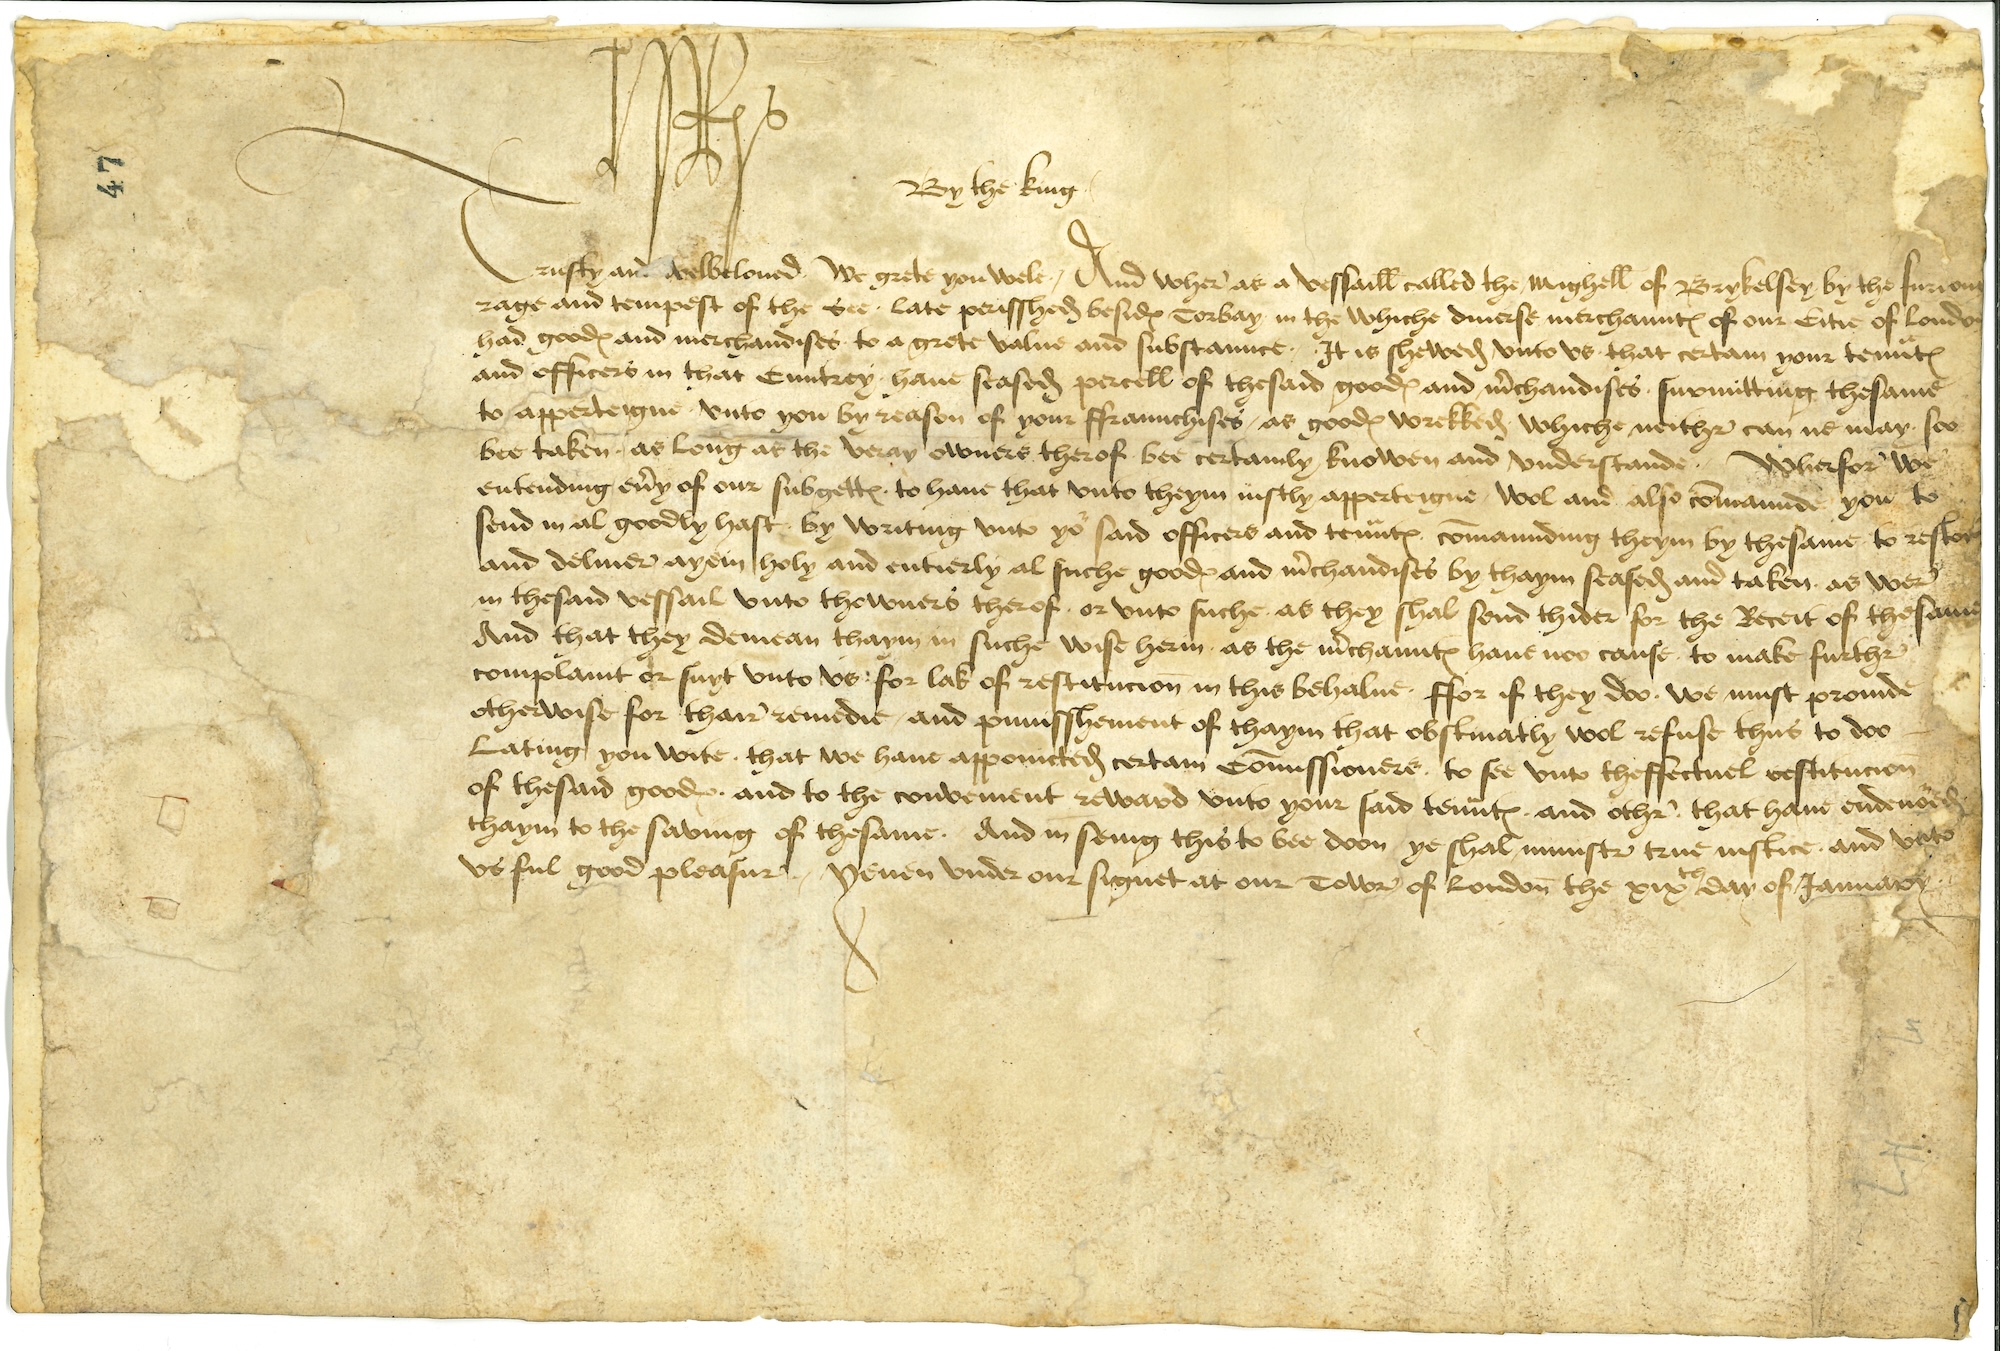 HR
47
By the king
Trusty and welbeloued We grete you wele / And wher as a vessaill called the Mighell of Brykelsey by the furious
rage and tempest of the See late perisshed besid᷎ Torbay in the whiche diuerse merchaunt᷎ of our Citie of London
had good᷎ and merchandises to a grete value and substaunce. It is shewed vnto vs that certain your tenn̄t᷎
and officers in that Cuntrey haue seased percell of thesaid good᷎ and m̄chandises surmitting thesame
to apperteigne vnto you by reason of your ffraunchises / as good᷎ wrekked whiche neithr can ne may soo
bee taken as long as the veray owners therof bee certainly knowen and vnderstande. Wherfor we
entending eūy of our subgett᷎ to haue that vnto theym iustly apperteigne / wol and also cōmaunde you to
send in al goodly hast by writing vnto yor said officers and tenn̄t᷎ cōmaunding theym by thesame to restor
and deliuer ayein holy and entierly al suche good᷎ and m̄chandises by thaym seased and taken as wer
in thesaid vessail vnto thowners therof or vnto suche as they shal send thider for the Receit of thesame
And that they demean thaym in suche wise herin as the m̄chaunt᷎ haue noo cause to make furthr
complaint or suyt vnto vs for lak of restitucion in this behalue. ffor if they doo we must prouide
otherwise for thair remedie and punisshement of thaym that obstinatly wol refuse thus to doo
Lating you wite that we haue appoincted certain Cōmissioners to see vnto theffectuel restitucion
of thesaid good᷎ and to the conuenient reward vnto your said tenn̄t᷎ and othr that haue endeuored
thaym to the sauing of thesame. And in seing this to bee doon ye shal ministr true iustice and vnto
vs ful good pleasur. Yeuen vnder our signet at our Towr of London the xixth day of January